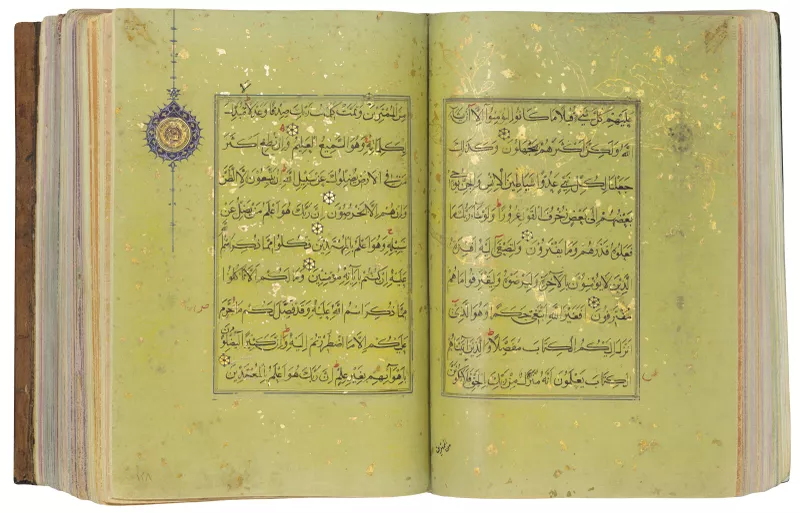 عليهم كل شيء قبلا ما كانوا ليؤمنوا الا ان يشاء
الله ولكن اكثرهم يجهلون وكذلك
جعلنا لكل نبي عدوا شياطين الانس والجن يوحي
بعضهم الى بعض زخرف القول غرورا ولو شاء ربك ما
فعلوه فذرهم وما يفترون ولتصغى اليه افئدة
الذين لا يؤمنون بالاخرة وليرضوه وليقترفوا ما هم
مقترفون افغير الله ابتغي حكما وهو الذي
انزل اليكم الكتاب مفصلا والذين اتيناهم
الكتاب يعلمون انه منزل من ربك بالحق فلا تكونن
من الممترين
من الممترين وتمت كلمت ربك صدقا وعدلا لا مبدل
لكلماته وهو السميع العليم وان تطع اكثر
من في الارض يضلوك عن سبيل الله ان يتبعون الا الظن
وان هم الا يخرصون ان ربك هو اعلم من يضل عن
سبيله وهو اعلم بالمهتدين فكلوا مما ذكر اسم الله
عليه ان كنتم باياته مؤمنين وما لكم الا تاكلوا
مما ذكر اسم الله عليه وقد فصل لكم ما حرم
عليكم الا ما اضطررتم اليه وان كثيرا ليضلون
باهوائهم بغير علم ان ربك هو اعلم بالمعتدين